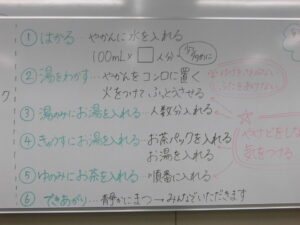 ① はかる… やかんに水を入れる
100mL×□人分
② 湯をわかす… やかんをコンロに置く
火をつけてふっとうさせる
③ 湯のみにお湯を入れる… 人数分入れる
④ きゅうすにお湯を入れる… お茶パックを入れる
お湯を入れる
⑤ ゆのみにお茶を入れる… 順番に入れる
⑥ できあがり… 静かにまつ→みんなでいただきます
☆
やけどをし
気をつける
ク